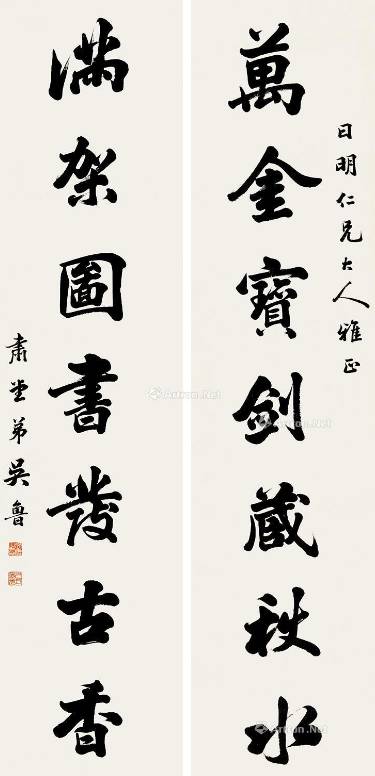 日明仁兄大人雅正
萬金寶劍蔵秋水
滿架圖書發古香
肅堂弟吳魯
Artron.Net
Artron.Net
Artron.Net
Artron.Net